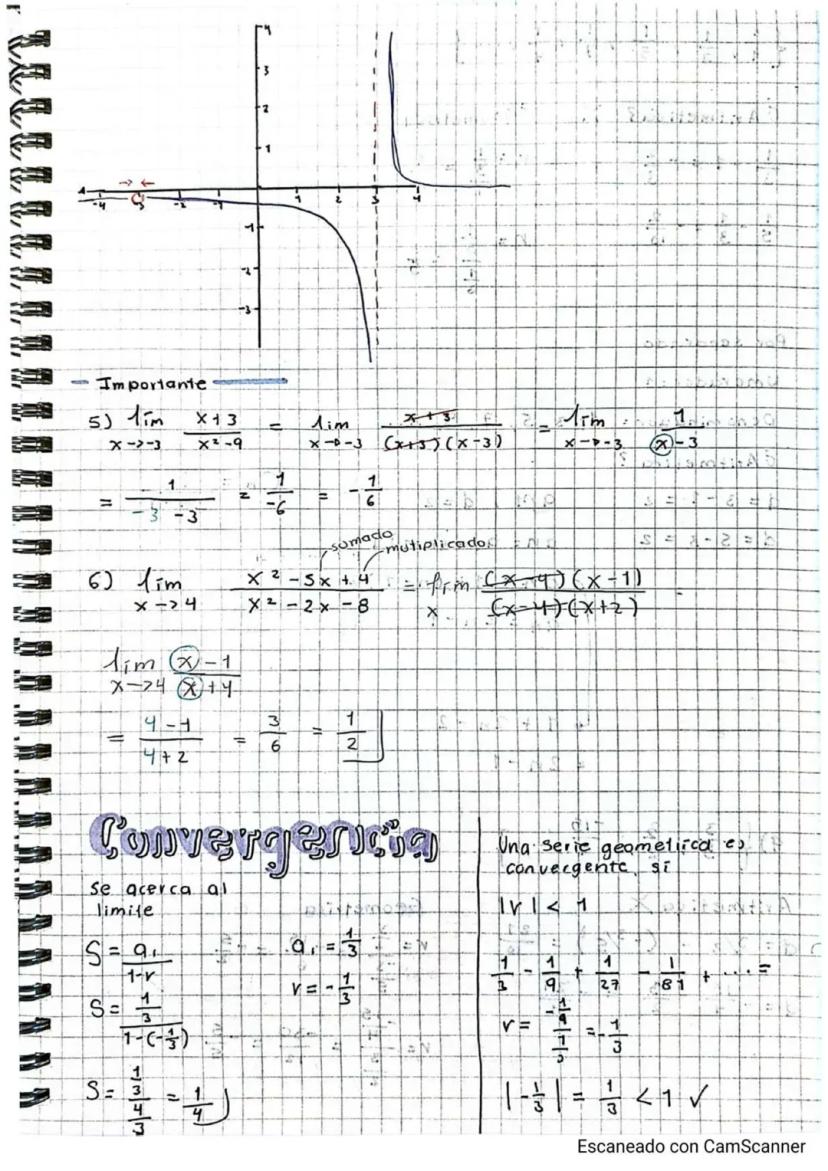 4
3
2
1
→ ←
-4 -3 -2 -1 1 2 3 4
-1
-2
-3
Importante
5) lím x→-3 x+3 / x²-9 = lím x→-3 x+3 / (x+3)(x-3) = lím x→-3 1 / x-3
= 1 / -3 -3 = 1 / -6 = - 1/6
sumado
mutiplicado
6) lím x→4 x² -5x + 4 / x² -2x -8 = lím x (x-4)(x-1) / (x-4)(x+2)
lím x→4 x-1 / x+4
= 4-1 / 4+2 = 3/6 = 1/2
Convergencia
se acerca al
limite
S = a₁ / 1-r a₁ = 1/3
r = - 1/3
S = 1/3 / 1-(-1/3)
S = 1/3 / 4/3 = 1/4
Una serie geometrica es
convergente si
|r| < 1
1/3 - 1/9 + 1/27 - 1/81 + ... =
r = -1/9 / 1/3 = - 1/3
|- 1/3| = 1/3 < 1 ✓
Escaneado con CamScanner